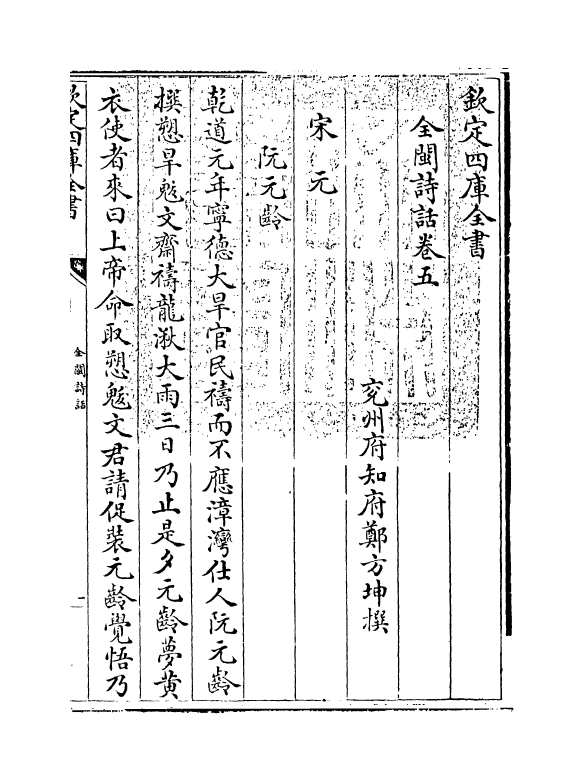 欽定四庫全書
全閩詩話卷五
兗州府知府鄭方坤撰
宋元
阮元齡
乾道元年寧德大旱官民禱而不應漳灣仕人阮元齡
撰愬旱魃文齋禱龍湫大雨三日乃止是夕元齡夢黄
衣使者來曰上帝命取愬魃文君請促裝元齡覺悟乃
欽定四庫全書
全閩詩話
一